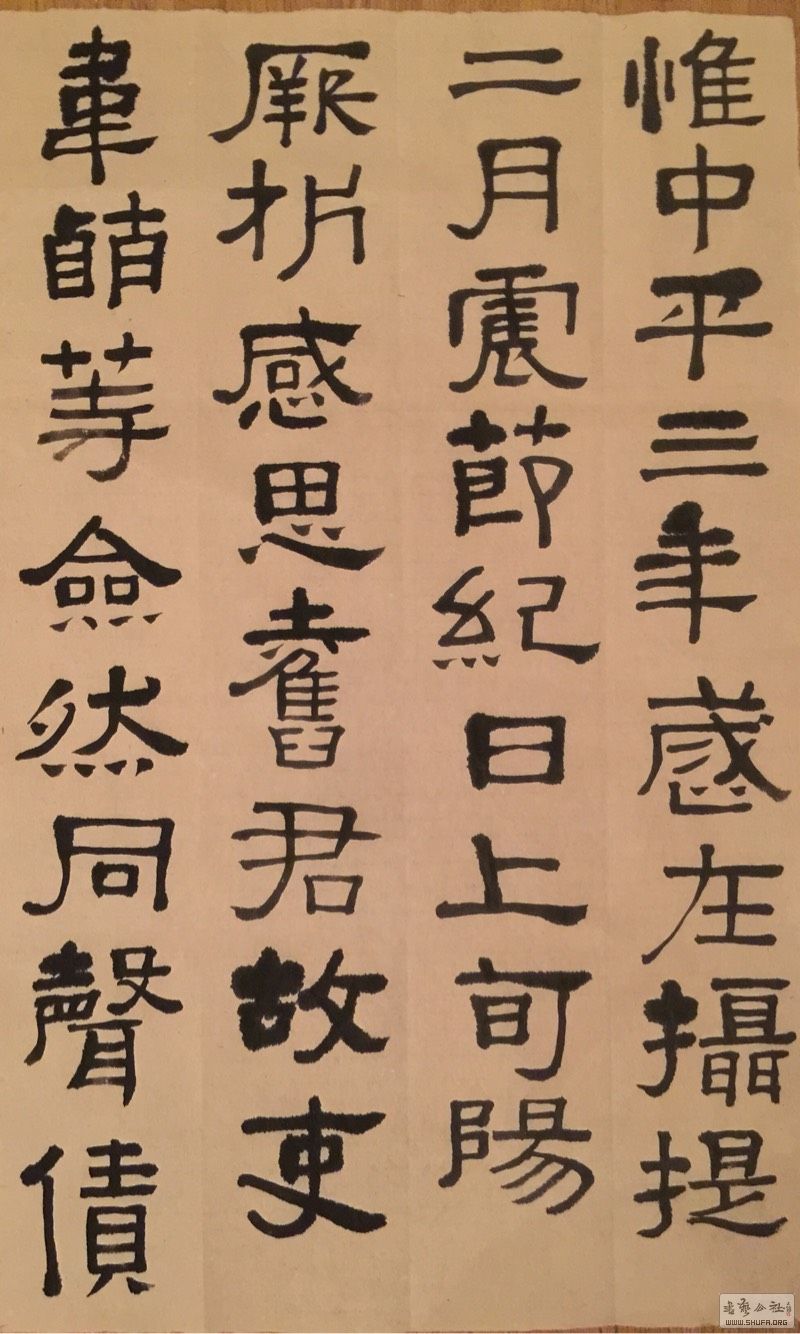 惟中平三年歲在攝提
二月震節紀日上旬陽
厥析感思舊君故吏
韋萌等僉然同聲債
書藝公社
WWW.SHUFA.ORG